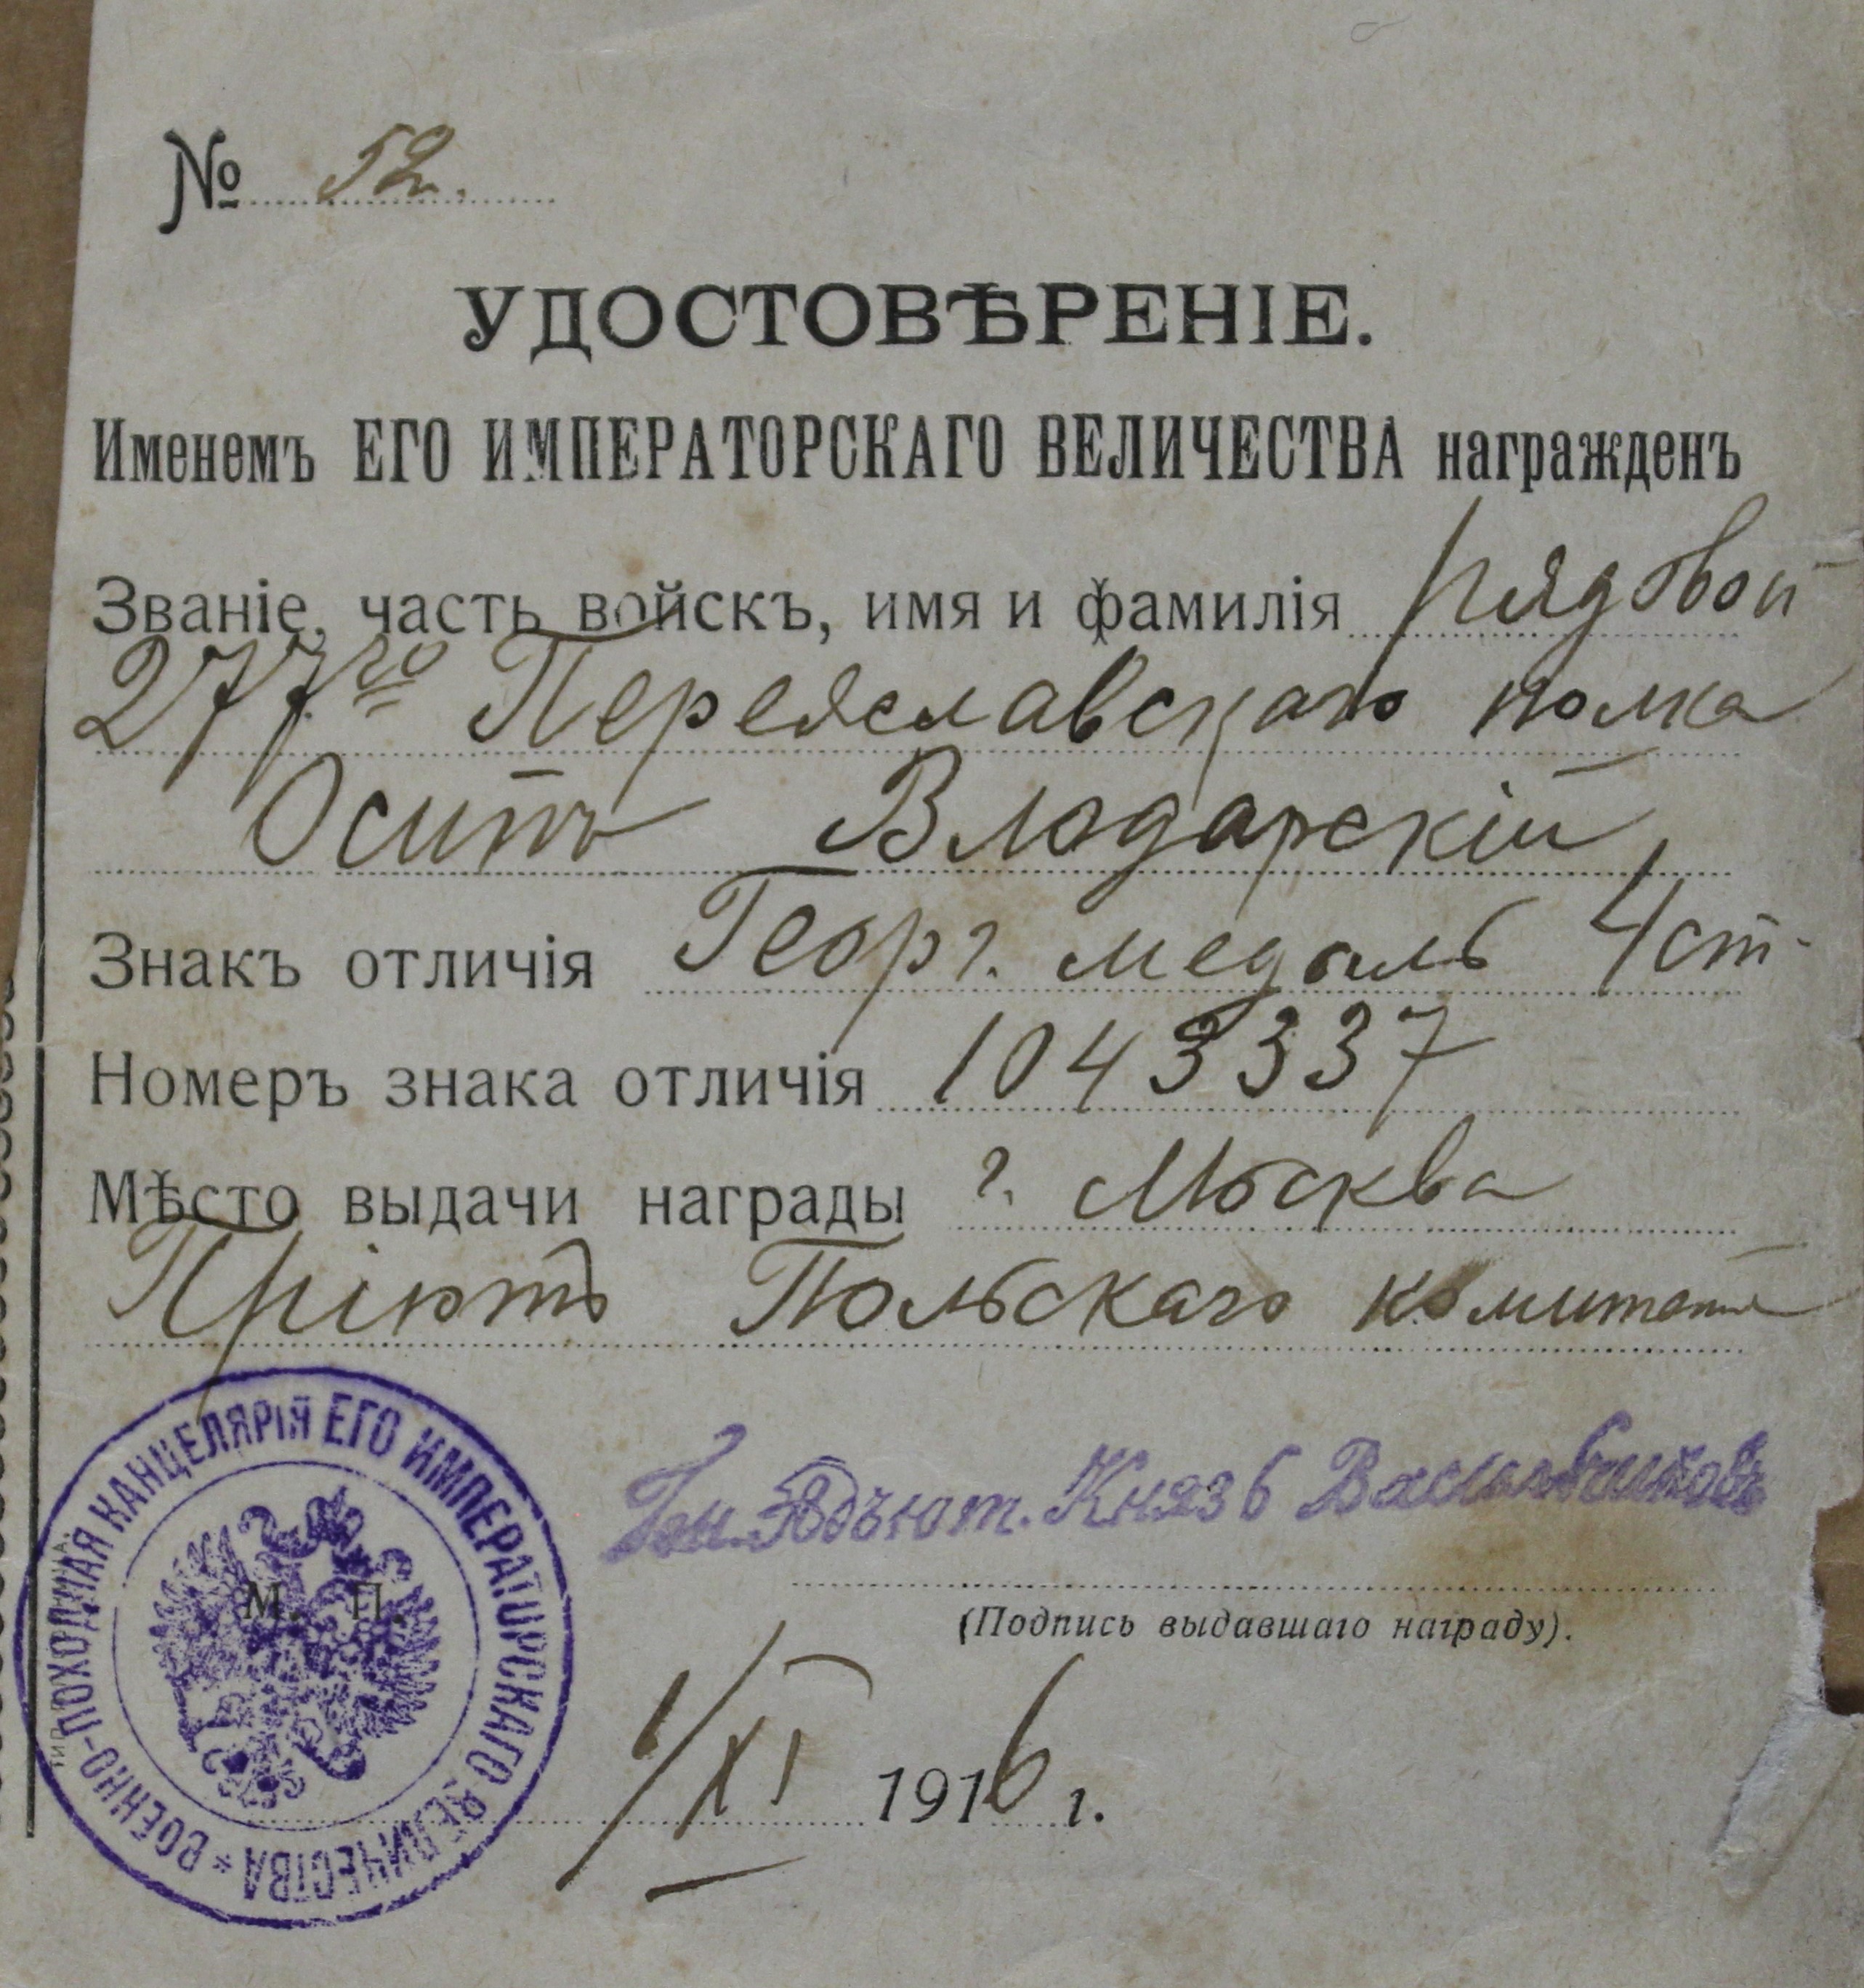 № 52.
УДОСТОВѢРЕНІЕ.
Именемъ ЕГО ИМПЕРАТОРСКАГО ВЕЛИЧЕСТВА награжденъ
Званіе, часть войскъ, имя и фамилія рядовой
277го Переяславскаго полка
Осипъ Влодарскій
Знакъ отличія Георг. медаль 4 ст.
Номеръ знака отличія 1043337
Мѣсто выдачи награды г. Москва
Пріютъ Польскаго комитета
ВОЕННО-ПОХОДНАЯ КАНЦЕЛЯРІЯ ЕГО ИМПЕРАТОРСКАГО ВЕЛИЧЕСТВА *
М. П.
Ген. Адъют. Князь Васильчиковъ
(Подпись выдавшаго награду).
1/XI 1916 г.